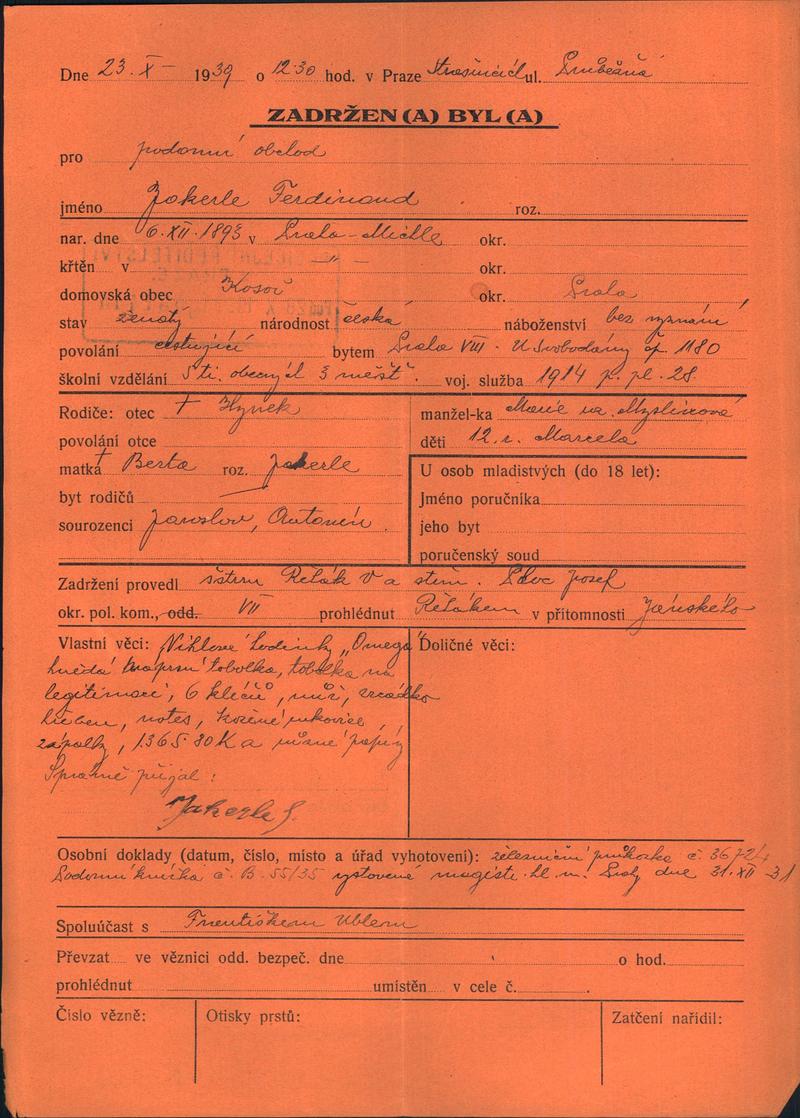 Dne 23. X – 1939 o 12·30 hod. v Praze ul.
ZADRŽEN(A) BYL(A)
pro podomní obchod
jméno Jokerle Ferdinand roz.
nar. dne 6. XII. 1893 v Praha-Michle okr.
křtěn v –„– okr.
domovská obec Kosoř okr. Praha
stav ženatý národnost česká náboženství bez vyznání
povolání cestující bytem Praha VIII - U Svobodárny čp. 1180
školní vzdělání 5 tř. obecných 3 měšť. voj. služba 1914 p. pl. 28.
Rodiče: otec † Hynek manžel-ka Marie Myslínová
povolání otce děti 12. r. Marcela
matka † Berta roz. Jokerle U osob mladistvých (do 18 let):
byt rodičů Jméno poručníka
sourozenci Jaroslav, Antonín. jeho byt
poručenský soud
Zadržení provedl Řehák V a Josef
okr. pol. kom., odd. VII prohlédnut Řehákem v přítomnosti
Vlastní věci: hodinky „Omega“ Doličné věci:
hnědá náprsní tobolka, tobolka na
legitimaci, 6 klíčů, nůž, zrcádko
hřeben, notes, kožené rukavice,
zápalky, 1365·80 K a různé papíry
Správně přijal:
Jakerle F.
Osobní doklady (datum, číslo, místo a úřad vyhotovení): železniční průkazka č. 36724
č. B. 55/35 vystavené magistr. hl. m. Prahy dne 31. XII 31
Spoluúčast s Františkem Uhlem
Převzat ve věznici odd. bezpeč. dne o hod.
prohlédnut umístěn v cele č.
Číslo vězně: Otisky prstů: Zatčení nařídil: